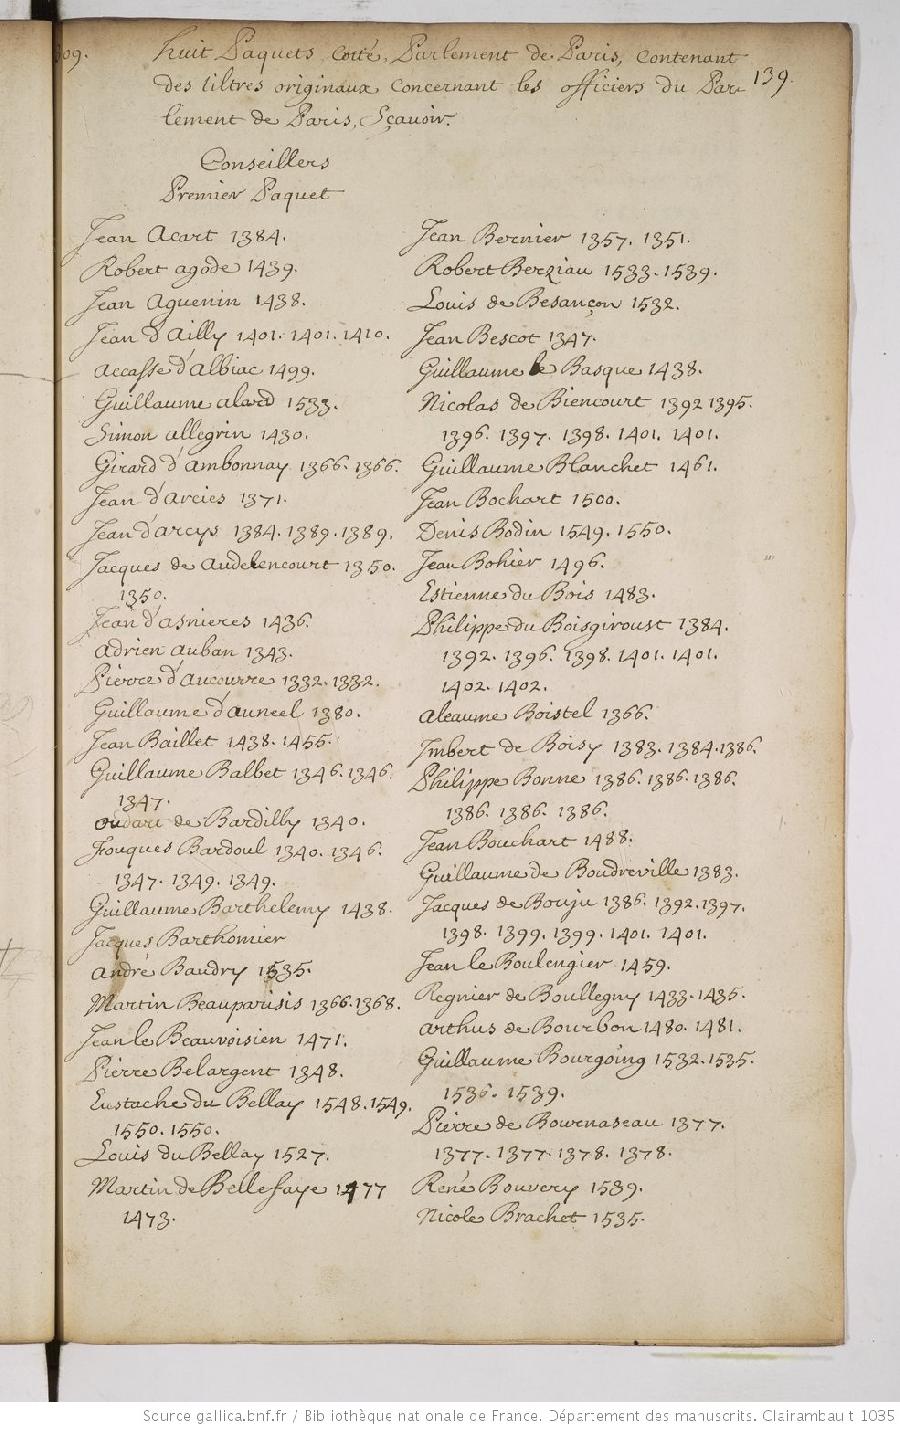 309.
huit Paquets, cotté, Parlement de Paris, contenant
des tiltres originaux concernant les officiers du Par
139.
lement de Paris, Sçavoir.
Conseillers
Premier Paquet
Jean Acart 1384.
Robert agode 1439.
Jean Aguenin 1438.
Jean d'Ailly 1401. 1401. 1410.
accasse d'albiac 1499.
Guillaume alard 1533.
Simon allegrin 1430.
Girard d'ambonnay 1366. 1366.
Jean d'arcies 1371.
Jean d'arcys 1384. 1389. 1389.
Jacques de audelencourt 1350.
1350.
Jean d'asnieres 1436.
adrien auban 1343.
Pierre d'aucourre 1332. 1332.
Guillaume d'auneel 1380.
Jean Baillet 1438. 1455.
Guillaume Balbet 1346. 1346
1347.
oudart de Bardilly 1340.
Fouques Bardoul 1340. 1346.
1347. 1349. 1349.
Guillaume Barthelemy 1438.
Jacques Barthomier
andré Baudry 1535.
Martin Beauparisis 1366. 1368.
Jean le Beauvoisien 1471.
Pierre Belargent 1348.
Eustache du Bellay 1548. 1549.
1550. 1550.
Louis du Bellay 1527.
Martin de Bellefaye 1477
1473.
Jean Bernier 1357. 1351.
Robert Berziau 1533. 1539.
Louis de Besançon 1532.
Jean Bescot 1347.
Guillaume le Basque 1438.
Nicolas de Biencourt 1392 1395.
1396. 1397. 1398. 1401. 1401.
Guillaume Blanchet 1461.
Jean Bochart 1500.
Denis Bodin 1549. 1550.
Jean Bohier 1496.
Estienne du Bois 1483.
Philippe du Boisgiroust 1384.
1392. 1396. 1398. 1401. 1401.
1402. 1402.
aleaume Boistel 1366.
Imbert de Boisy 1383. 1384. 1386.
Philippe Bonne 1386. 1386. 1386.
1386. 1386. 1386.
Jean Bouchart 1488.
Guillaume de Boudreville 1383.
Jacques de Bouju 1386. 1392. 1397.
1398. 1399. 1399. 1401. 1401.
Jean le Boulengier 1459.
Regnier de Boullegny 1433. 1435.
arthus de Bourbon 1480. 1481.
Guillaume Bourgoing 1532. 1535.
1536. 1539.
Pierre de Bournaseau 1377.
1377. 1377. 1378. 1378.
René Bouvery 1539.
Nicole Brachet 1535.
Source gallica.bnf.fr / Bibliothèque nationale de France. Département des manuscrits. Clairambault 1035